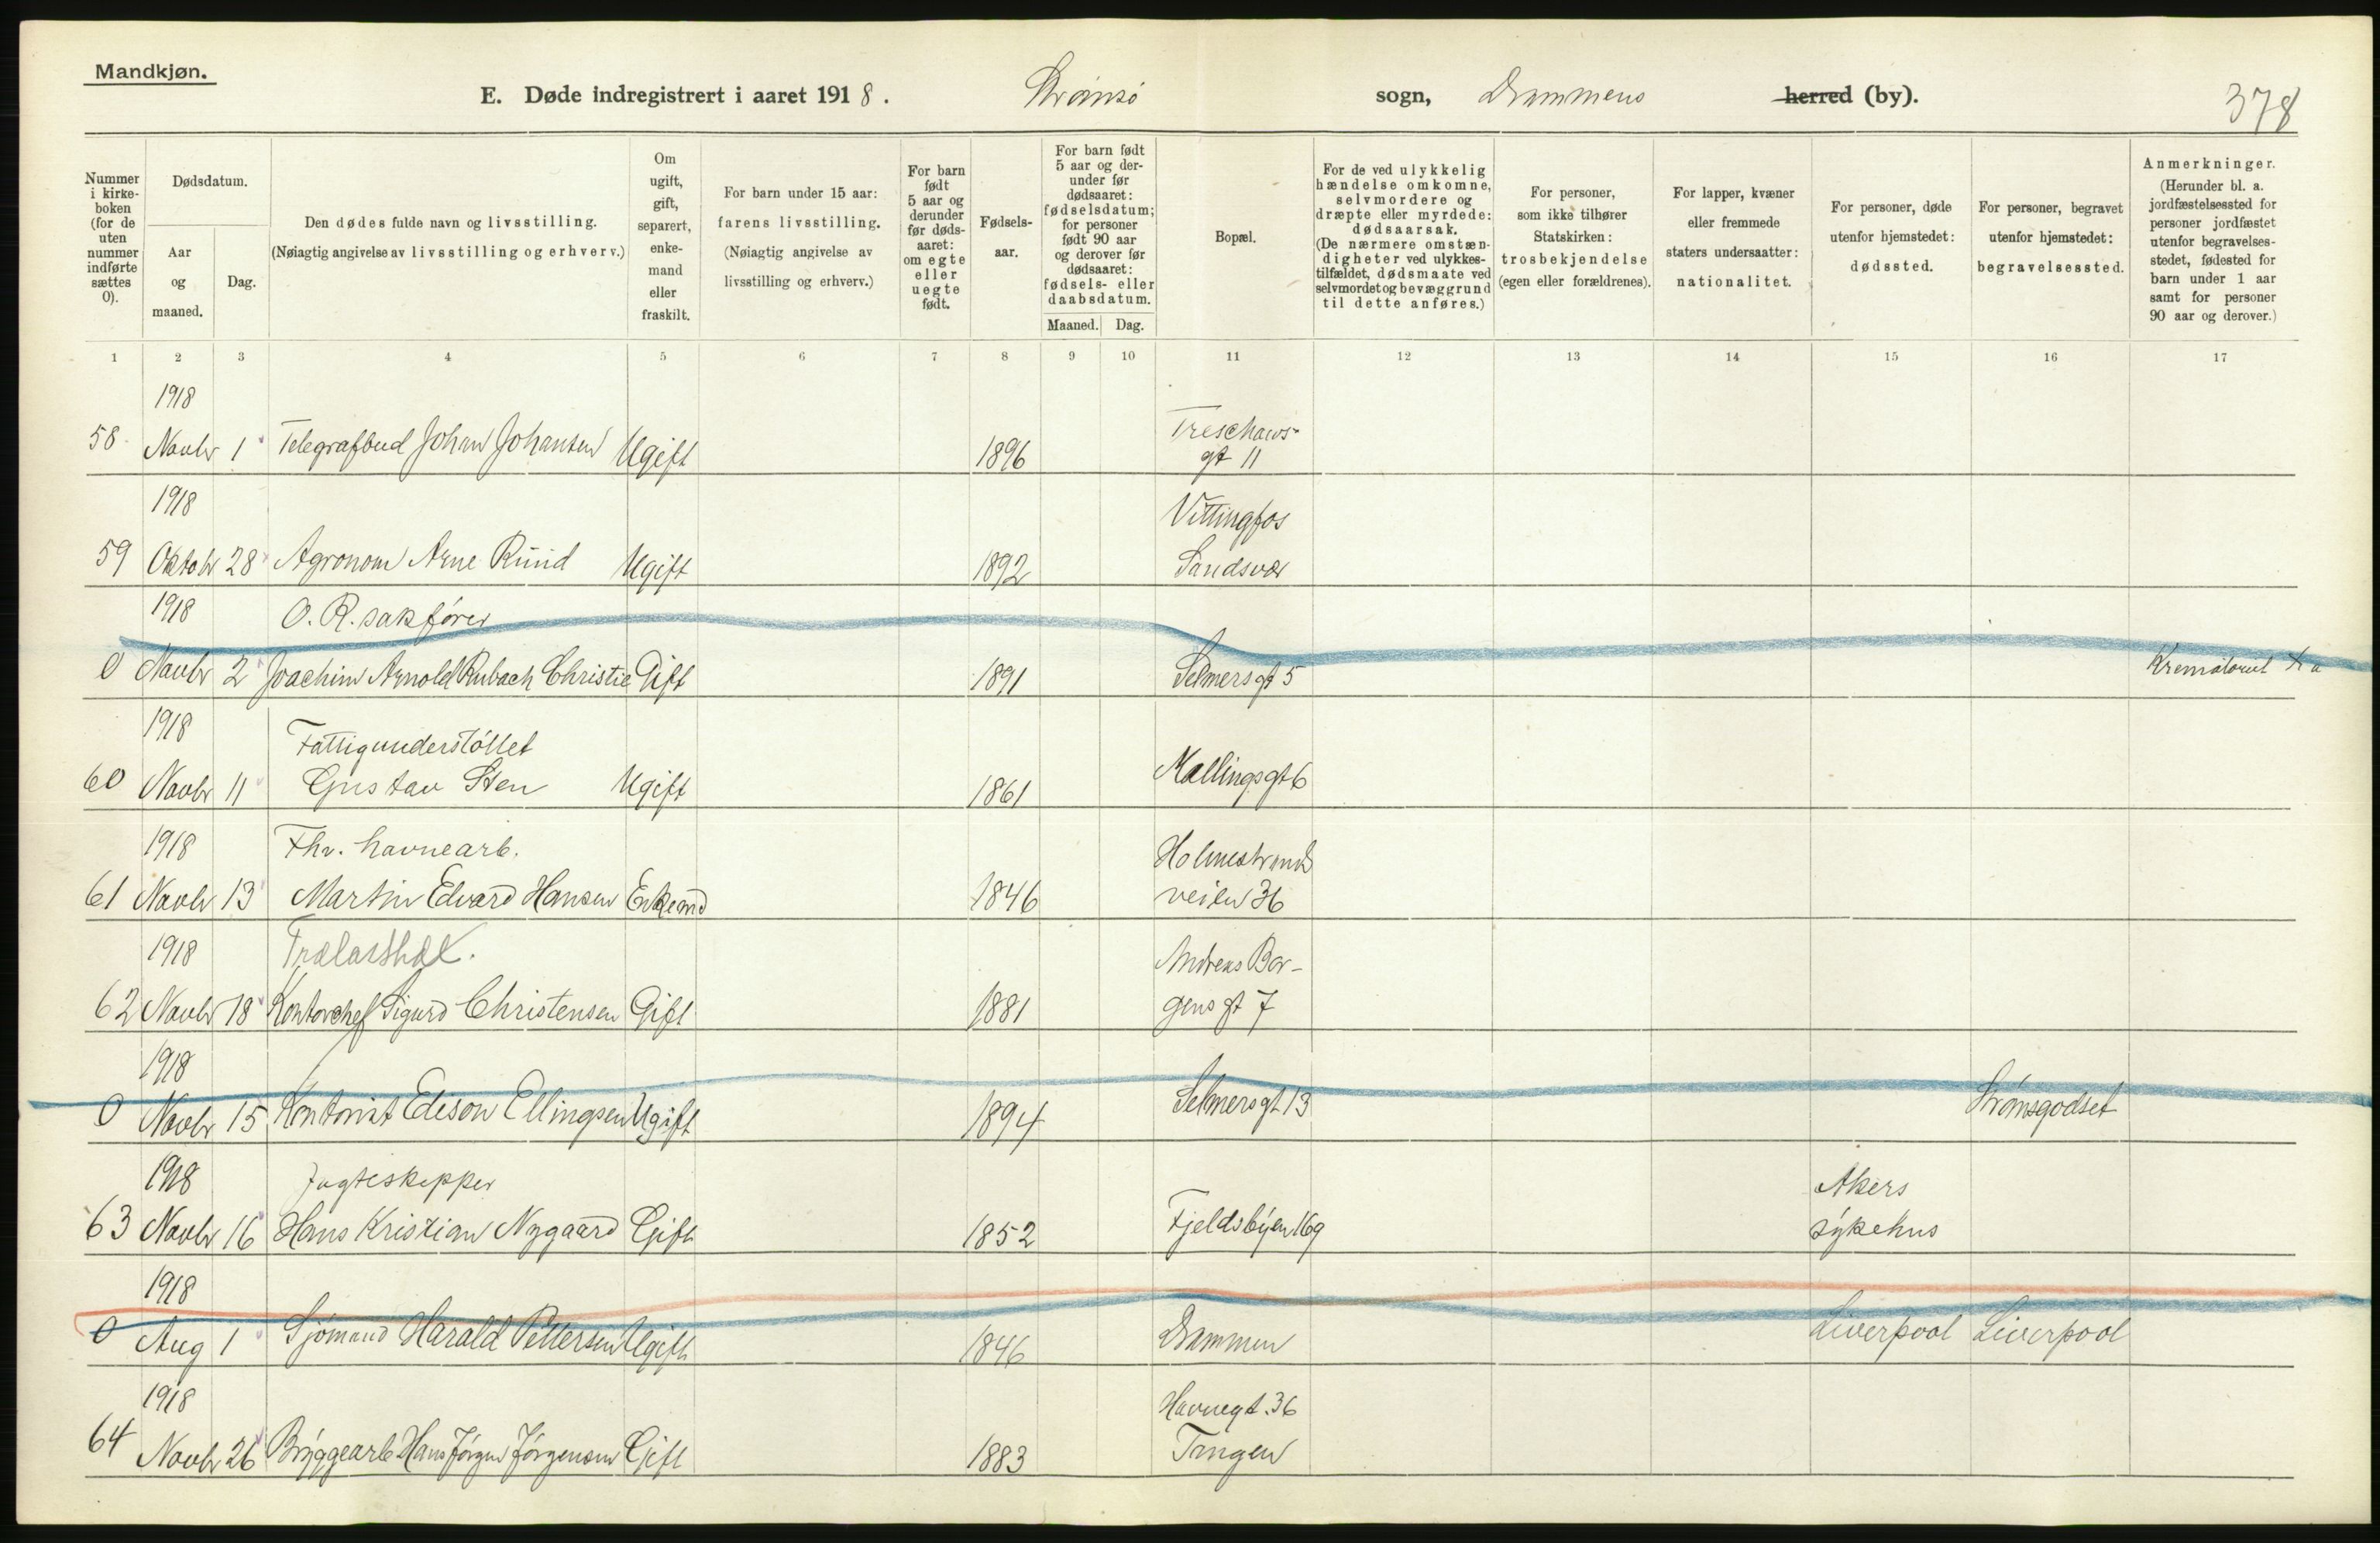 Mandkjøn.
E. Døde indregistrert i aaret 1918. Strømsö sogn, Drammens herred (by). 378
Nummer i kirke-boken (for de uten nummer indførte sættes 0).
Dødsdatum.
Aar og maaned.
Dag.
Den dødes fulde navn og livsstilling.
(Nøiagtig angivelse av livsstilling og erhverv.)
Om ugift, gift, separert, enke-mand eller fraskilt.
For barn under 15 aar: farens livsstilling.
(Nøiagtig angivelse av livsstilling og erhverv.)
For barn født 5 aar og derunder før døds-aaret: om egte eller uegte født.
Fødsels-aar.
For barn født 5 aar og der-under før dødsaaret: fødselsdatum; for personer født 90 aar og derover før dødsaaret: fødsels- eller daabsdatum.
Maaned. Dag.
Bopæl.
For de ved ulykkelig hændelse omkomne, selvmordere og dræpte eller myrdede: dødsaarsak.
(De nærmere omstæn-digheter ved ulykkes-tilfældet, dødsmaate ved selvmordet og bevæggrund til dette anføres.)
For personer, som ikke tilhører Statskirken: trosbekjendelse (egen eller forældrenes).
For lapper, kvæner eller fremmede staters undersaatter: nationalitet.
For personer, døde utenfor hjemstedet: dødssted.
For personer, begravet utenfor hjemstedet: begravelsessted.
Anmerkninger.
(Herunder bl. a. jordfæstelsessted for personer jordfæstet utenfor begravelses-stedet, fødested for barn under 1 aar samt for personer 90 aar og derover.)
1 2 3 4 5 6 7 8 9 10 11 12 13 14 15 16 17
1918 Treschows-
58 Novbr 1 Telegrafbud Johan Johansen Ugift 1896 gt 11
1918 Vittingfos
59 Oktobr 28 Agronom Arne Ruud Ugift 1892 Sandsvær
1918 O. R. sakfører
0 Novbr 2 Joachim Arnold Rubach Christie Gift 1891 Selmersgt 5 Krematoriet Kra
1918 Fattigunderstöttet
60 Novbr 11 Gustav Sten Ugift 1861 Mallingsgt 6
1918 Fhv. havnearb. Holmestrands
61 Novbr 13 Martin Edvard Hansen Enkemd 1846 veien 36
1918 Trælasthdl. Andreas Bor-
62 Novbr 18 Kontorchef Sigurd Christensen Gift 1881 gens gt 7
1918
0 Novbr 15 Kontorist Edison Ellingsen Ugift 1894 Selmersgt 13 Strömsgodset
1918 Jagteskipper Akers
63 Novbr 16 Hans Kristian Nygaard Gift 1852 Fjeldsbyen 169 sykehus
1918
0 Aug 1 Sjömand Harald Pettersen Ugift 1846 Drammen Liverpool Liverpool
1918 Havnegt. 36
64 Novbr 26 Bryggearb Hans Jörgen Jörgensen Gift 1883 Tangen